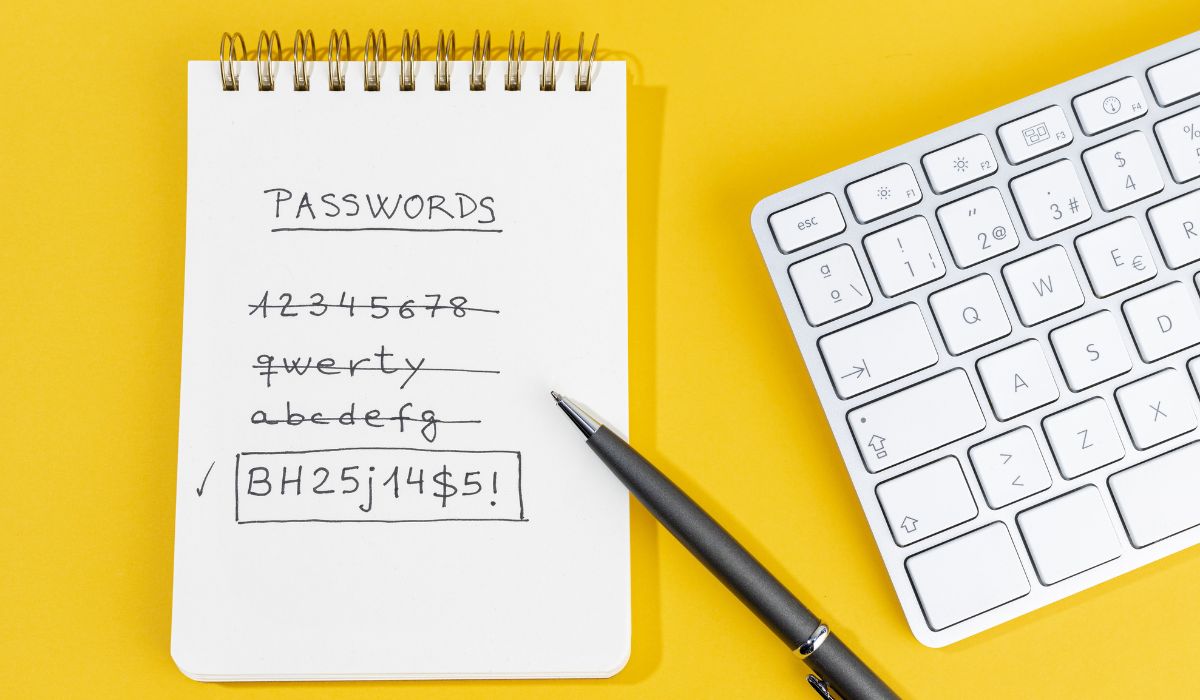 PASSWORDS
12345678
qwerty
abcdefg
✓ BH25j14$5!
esc F1 F2 F3 F4
ª º \ ! 1 ¦ " 2 @ · 3 # $ 4 %
Q W E € R
A S D
> < Z X